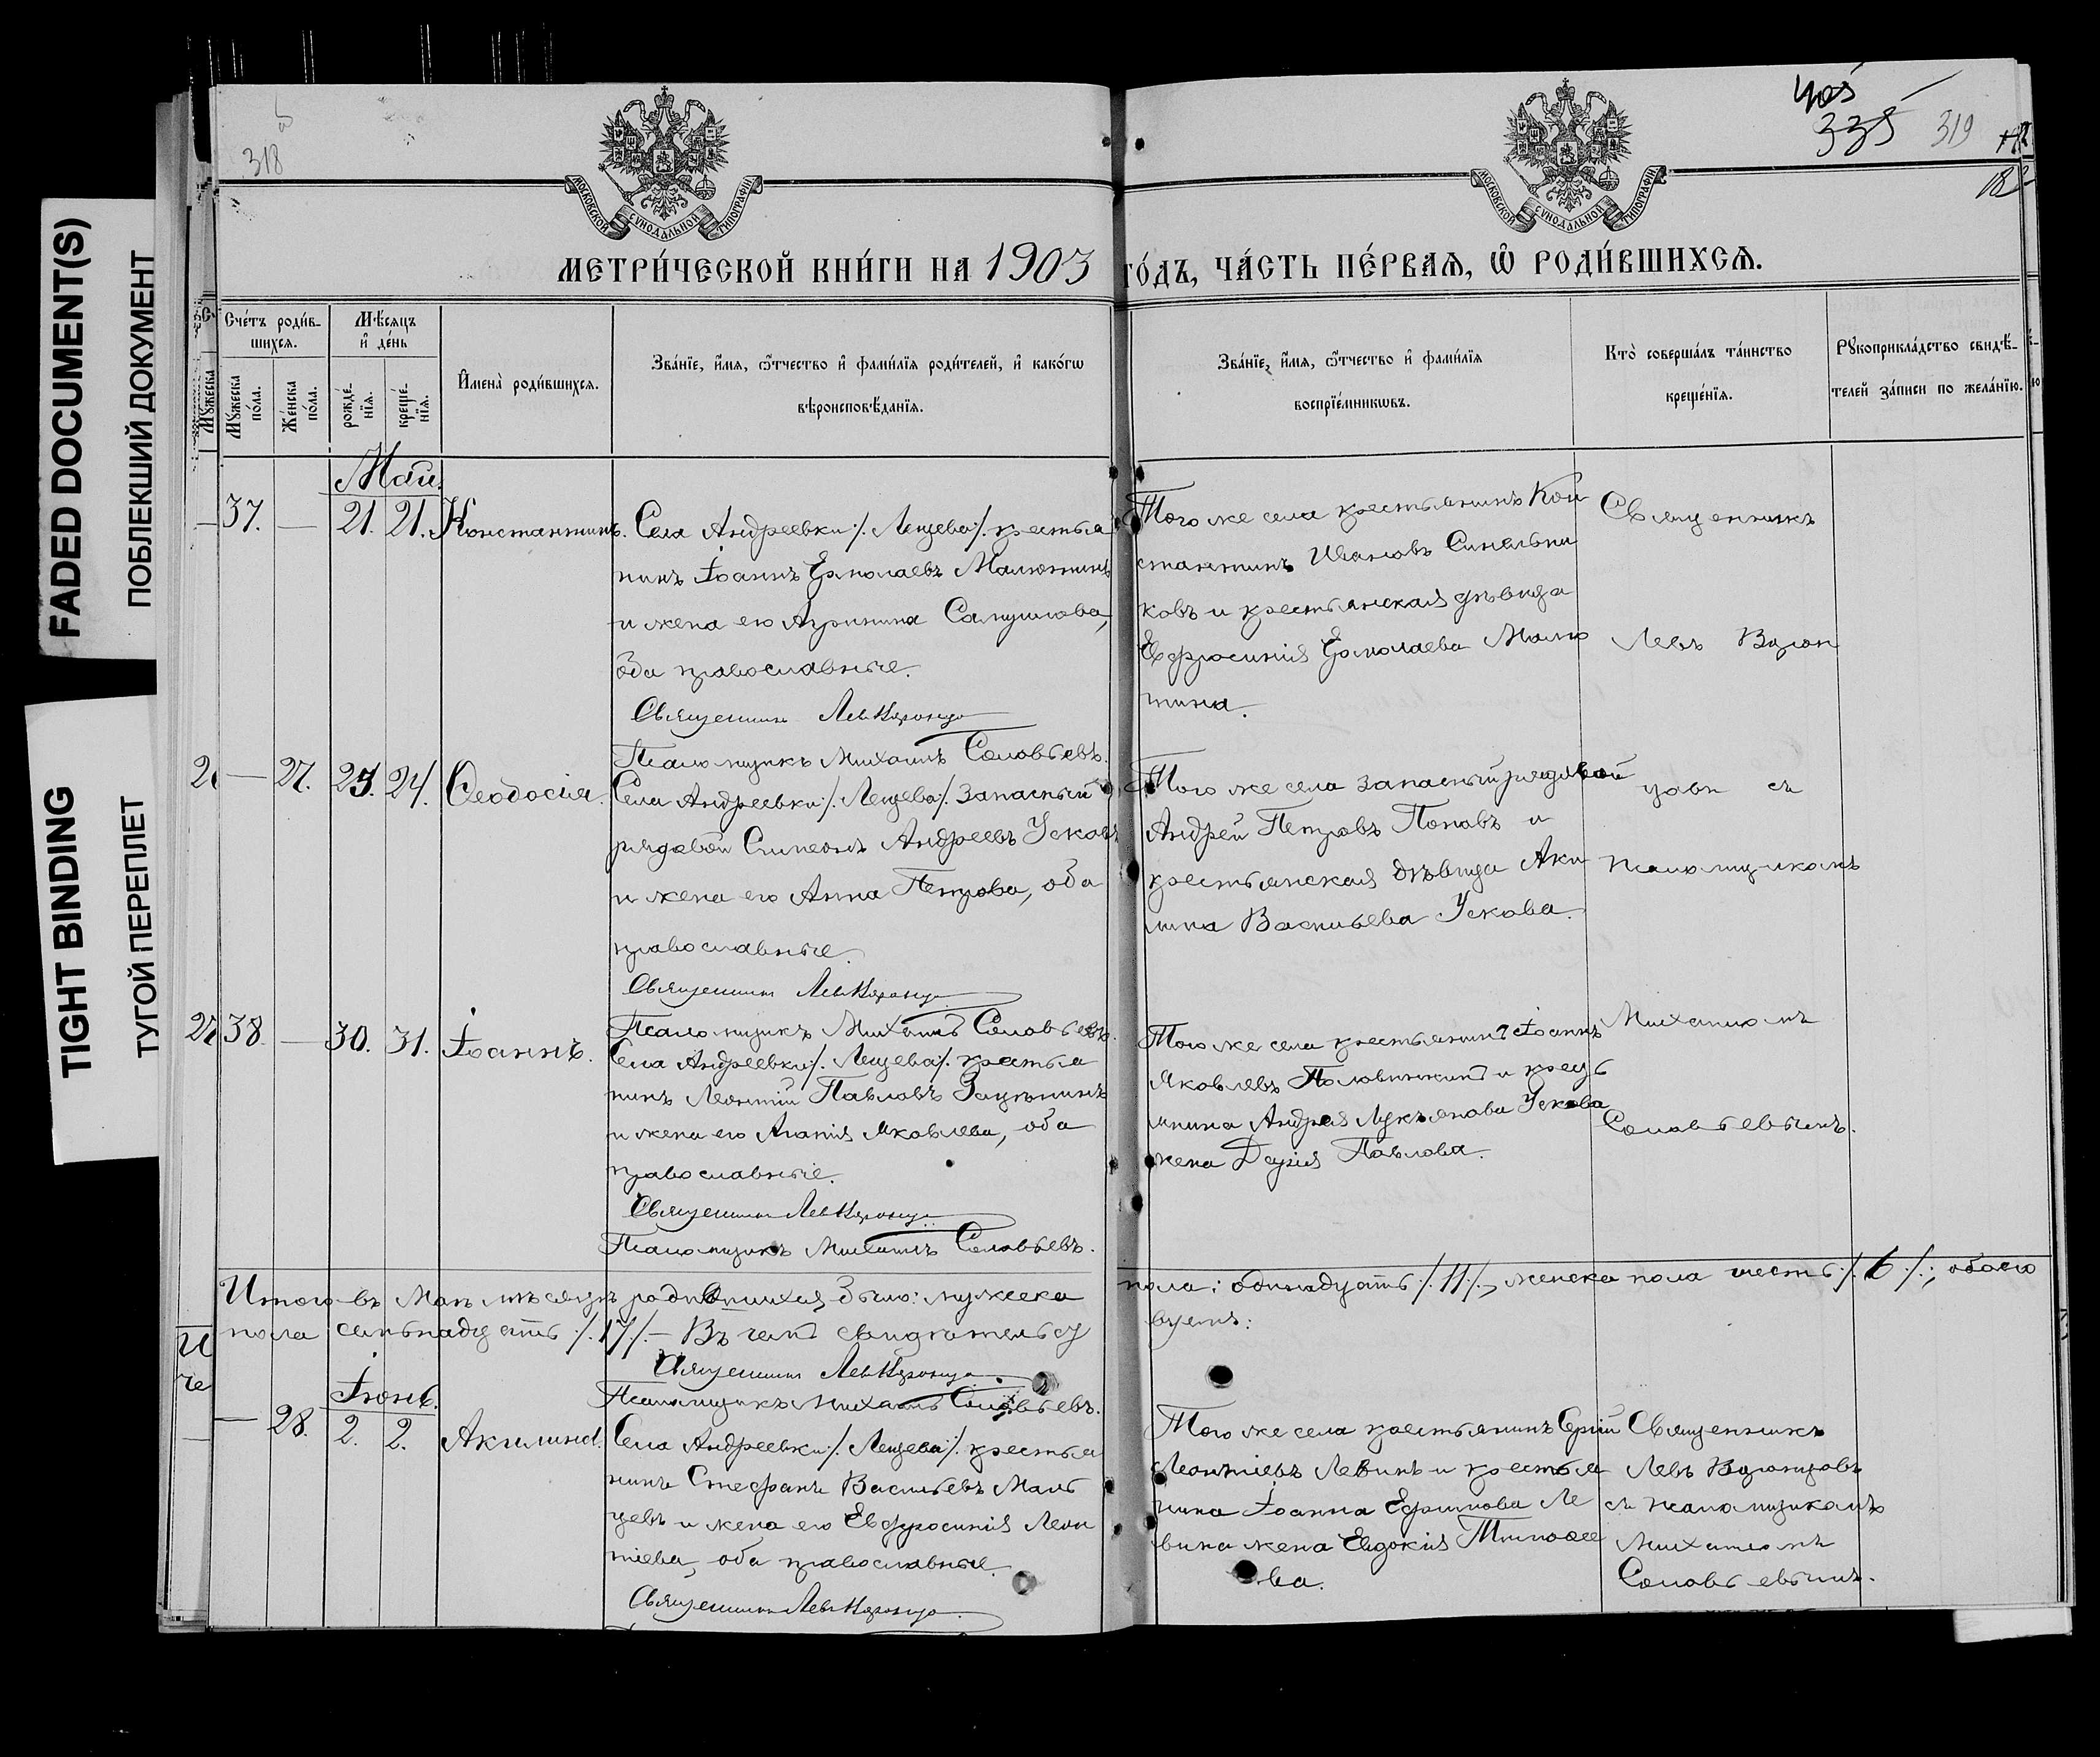 FADED DOCUMENT(S)
ПОБЛЕКШИЙ ДОКУМЕНТ
TIGHT BINDING
ТУГОЙ ПЕРЕПЛЕТ
318
405
335
319
МОСКОВСКОЙ СѴНОДАЛЬНОЙ ТИПОГРАФІИ
МОСКОВСКОЙ СѴНОДАЛЬНОЙ ТИПОГРАФІИ
МЕТРИ́ЧЕСКОЙ КНИ́ГИ НА 1903 ГО́ДЪ, ЧА́СТЬ ПЕ́РВАЯ, Ѡ РОДИ́ВШИХСЯ.
Сче́тъ роди́в-
шихся.
Мꙋжеска
по́ла.
Же́нска
по́ла.
Мѣ́сяцъ
и҆ де́нь
рожде́-
нїя.
креще́-
нїя.
И҆мена̀ роди́вшихся.
Зва́нїе, и҆́мя, ѻ҆́тчество и҆ фами́лїя роди́телей, и҆ како́гѡ
вѣроисповѣ́данїя.
Зва́нїе, и҆́мя, ѻ҆́тчество и҆ фами́лїя
воспрїе́мникѡвъ.
Кто̀ соверша́лъ та́инство
креще́нїя.
Рꙋкоприкла́дство свидѣ́-
телей за́писи по жела́нїю.
Май.
37. — 21. 21. Константинъ.
Села Андреевки /. Лещева /. крестья
нинъ Іоаннъ Ермолаевъ Малютинъ
и жена его Агрипина Самуилова,
оба православные.
Священникъ Левъ Воронцо
Псаломщикъ Михаилъ Соловьевъ.
Того же села крестьянинъ Кон
стантинъ Ивановъ Синельни
ковъ и крестьянская дѣвица
Евфросинія Ермолаева Малю
тина.
Священникъ
Левъ Ворон
— 27. 23. 24. Ѳеодосія.
Села Андреевки /. Лещева /. запасный
рядовой Симеонъ Андреевъ Усковъ
и жена его Анна Петрова, оба
православные.
Священникъ Левъ Воронцо
Псаломщикъ Михаилъ Соловьевъ.
Того же села запасный рядовой
Андрей Петровъ Поповъ и
крестьянская дѣвица Аки
лина Васильева Ускова.
цовъ съ
псаломщикомъ
38. — 30. 31. Іоаннъ.
Села Андреевки /. Лещева /. крестья
нинъ Леонтій Павловъ
и жена его Агапія Яковлева, оба
православные.
Священникъ Левъ Воронцо
Псаломщикъ Михаилъ Соловьевъ.
Того же села крестьянинъ Іоаннъ
Яковлевъ Половинкинъ и кресть
янина Андрея Лукьянова Ускова
жена Дарія Павлова.
Михаиломъ
Соловьевымъ.
Итого въ Маѣ мѣсяцѣ родившихся было: мужеска пола: одинадцать /. 11 /., женска пола шесть /. 6 /., обоего
пола семьнадцать /. 17 /. — Въ чемъ свидѣтельст вуемъ:
Священникъ Левъ Воронцо
Псаломщикъ Михаилъ Соловьевъ.
Іюнь.
— 28. 2. 2. Акилина.
Села Андреевки /. Лещева /. крестья
нинъ Стефанъ Васильевъ Маль
цевъ и жена его Евфросинія Леон
тіева, оба православные.
Священникъ Левъ Воронцо
Того же села крестьянинъ Сергій
Леонтіевъ Левинъ и крестья
нина Іоанна Ефимова Ле
вина жена Евдокія Тимоѳее
ва.
Священникъ
Левъ Воронцовъ
съ псаломщикомъ
Михаиломъ
Соловьевымъ.